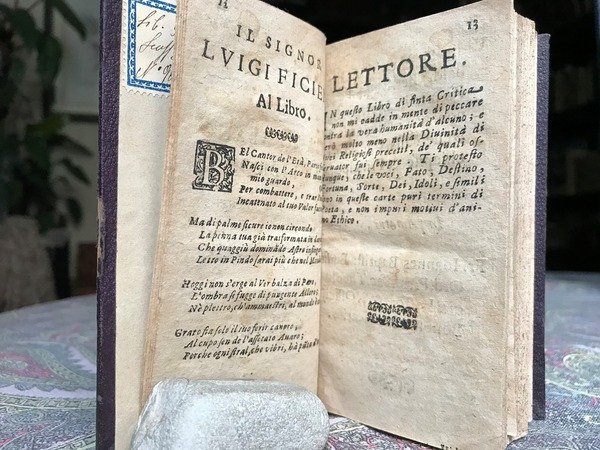 IL SIGNOR
LVIGI FICIE
Al Libro.
BEl Cantor de l'Età,
Nasci con l'Arco in man
mio guardo,
Per combattere, e
Incatenato al tuo Valor
Ma di palme sicure io non circondo
La penna tua già trasformata in
Che quaggiù dominado Astro
Letto in Pindo sarai più che nel
Hoggi non s'erge al Verbalza di
L'ombra si fugge di pungente Alloro;
Nè plettro, ch'ammaestri, al mondo
Grato sia solo il tuo ferir canoro;
Al cupo sen de l'assetato Auaro;
Perche ogni stral, che vibri, hà
13
LETTORE.
IN questo Libro di finta Critica
non mi cadde in mente di peccare
contra la vera humanità d'alcuno; e
però molto meno nella Diuinità di
Religiosi precetti, de' quali os-
seruator fui sempre. Ti protesto
dunque, che le voci, Fato, Destino,
Fortuna, Sorte, Dei, Idoli, e simili
sono in queste carte puri termini di
Poeta, e non empij motiui d'ani-
mo Ethico.